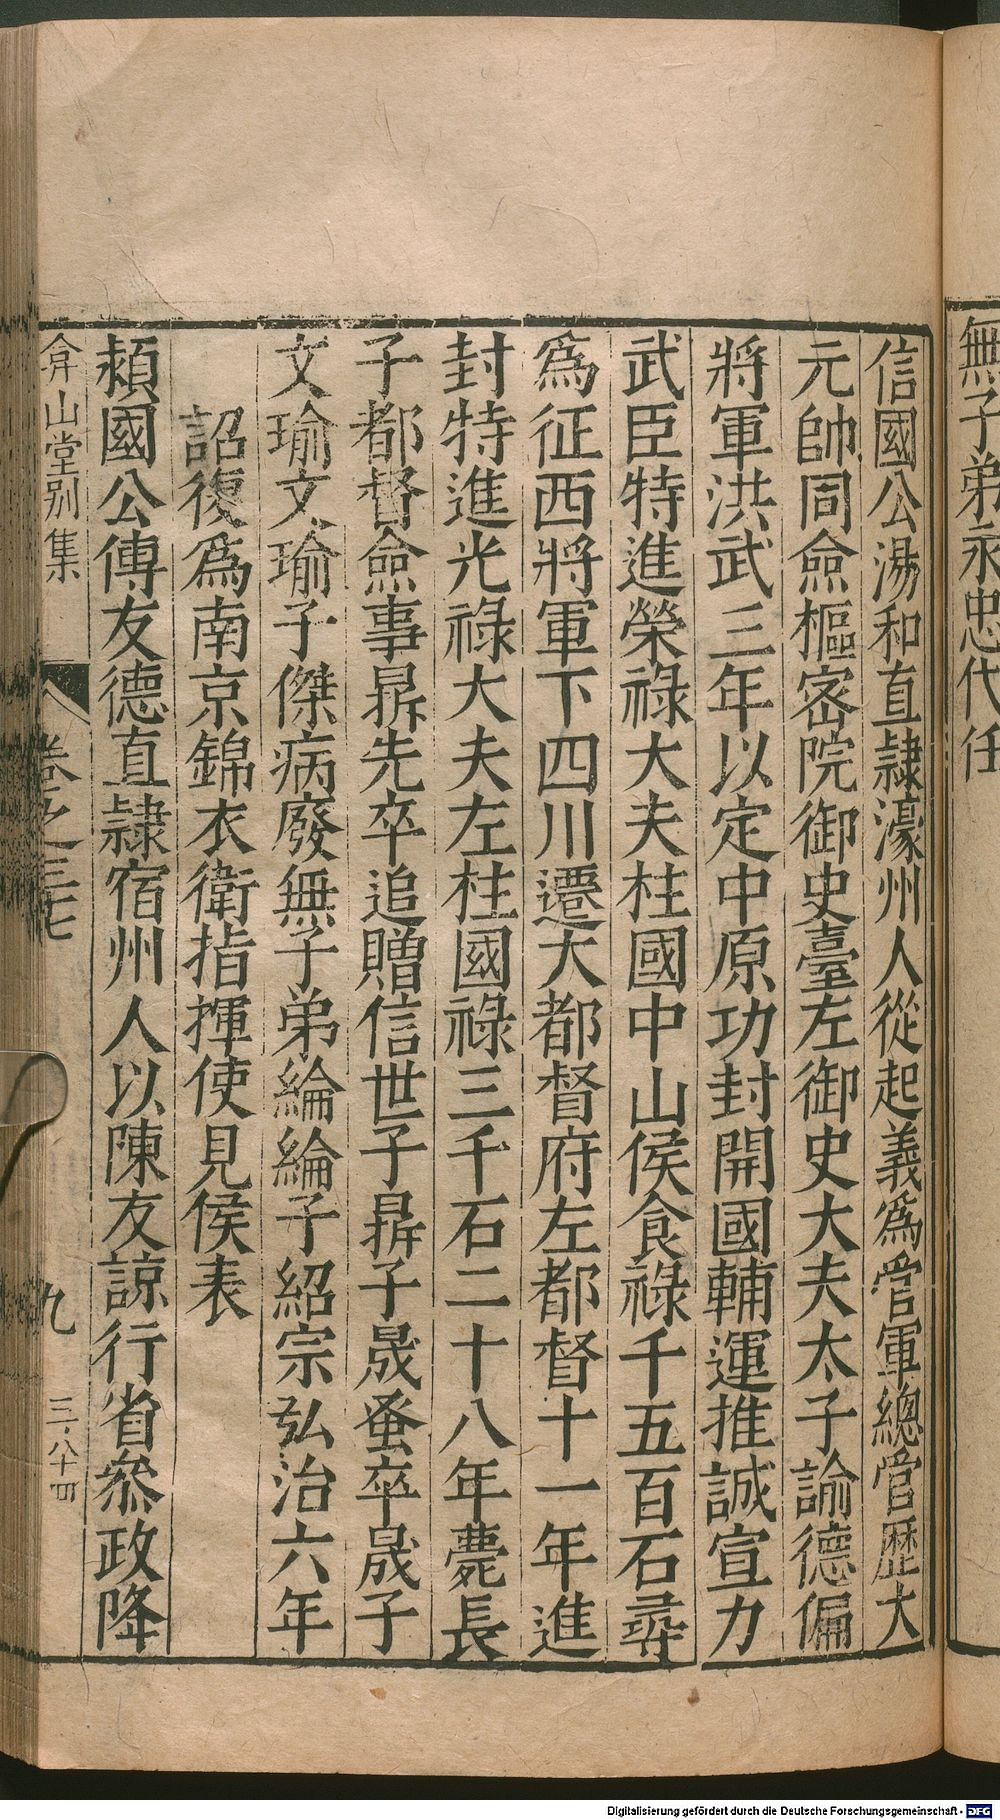 無子弟永忠代任
信國公湯和直隷濠州人從起義爲營軍總管歷大
元帥同僉樞宻院御史臺左御史大夫太子諭德偏
將軍洪武三年以定中原功封開國輔運推誠宣力
武臣特進榮祿大夫柱國中山侯食祿千五百石尋
爲征西將軍下四川遷大都督府左都督十一年進
封特進光祿大夫左柱國祿三千石二十八年薨長
子都督僉事鼎先卒追贈信世子鼎子晟蚤卒晟子
文瑜文瑜子傑病廢無子弟綸綸子紹宗弘治六年
詔復爲南京錦衣衛指揮使見侯表
潁國公傅友德直隷宿州人以陳友諒行省叅政降
弇山堂别集
卷之三十七
九
三·八十四
Digitalisierung gefördert durch die Deutsche Forschungsgemeinschaft - DFG